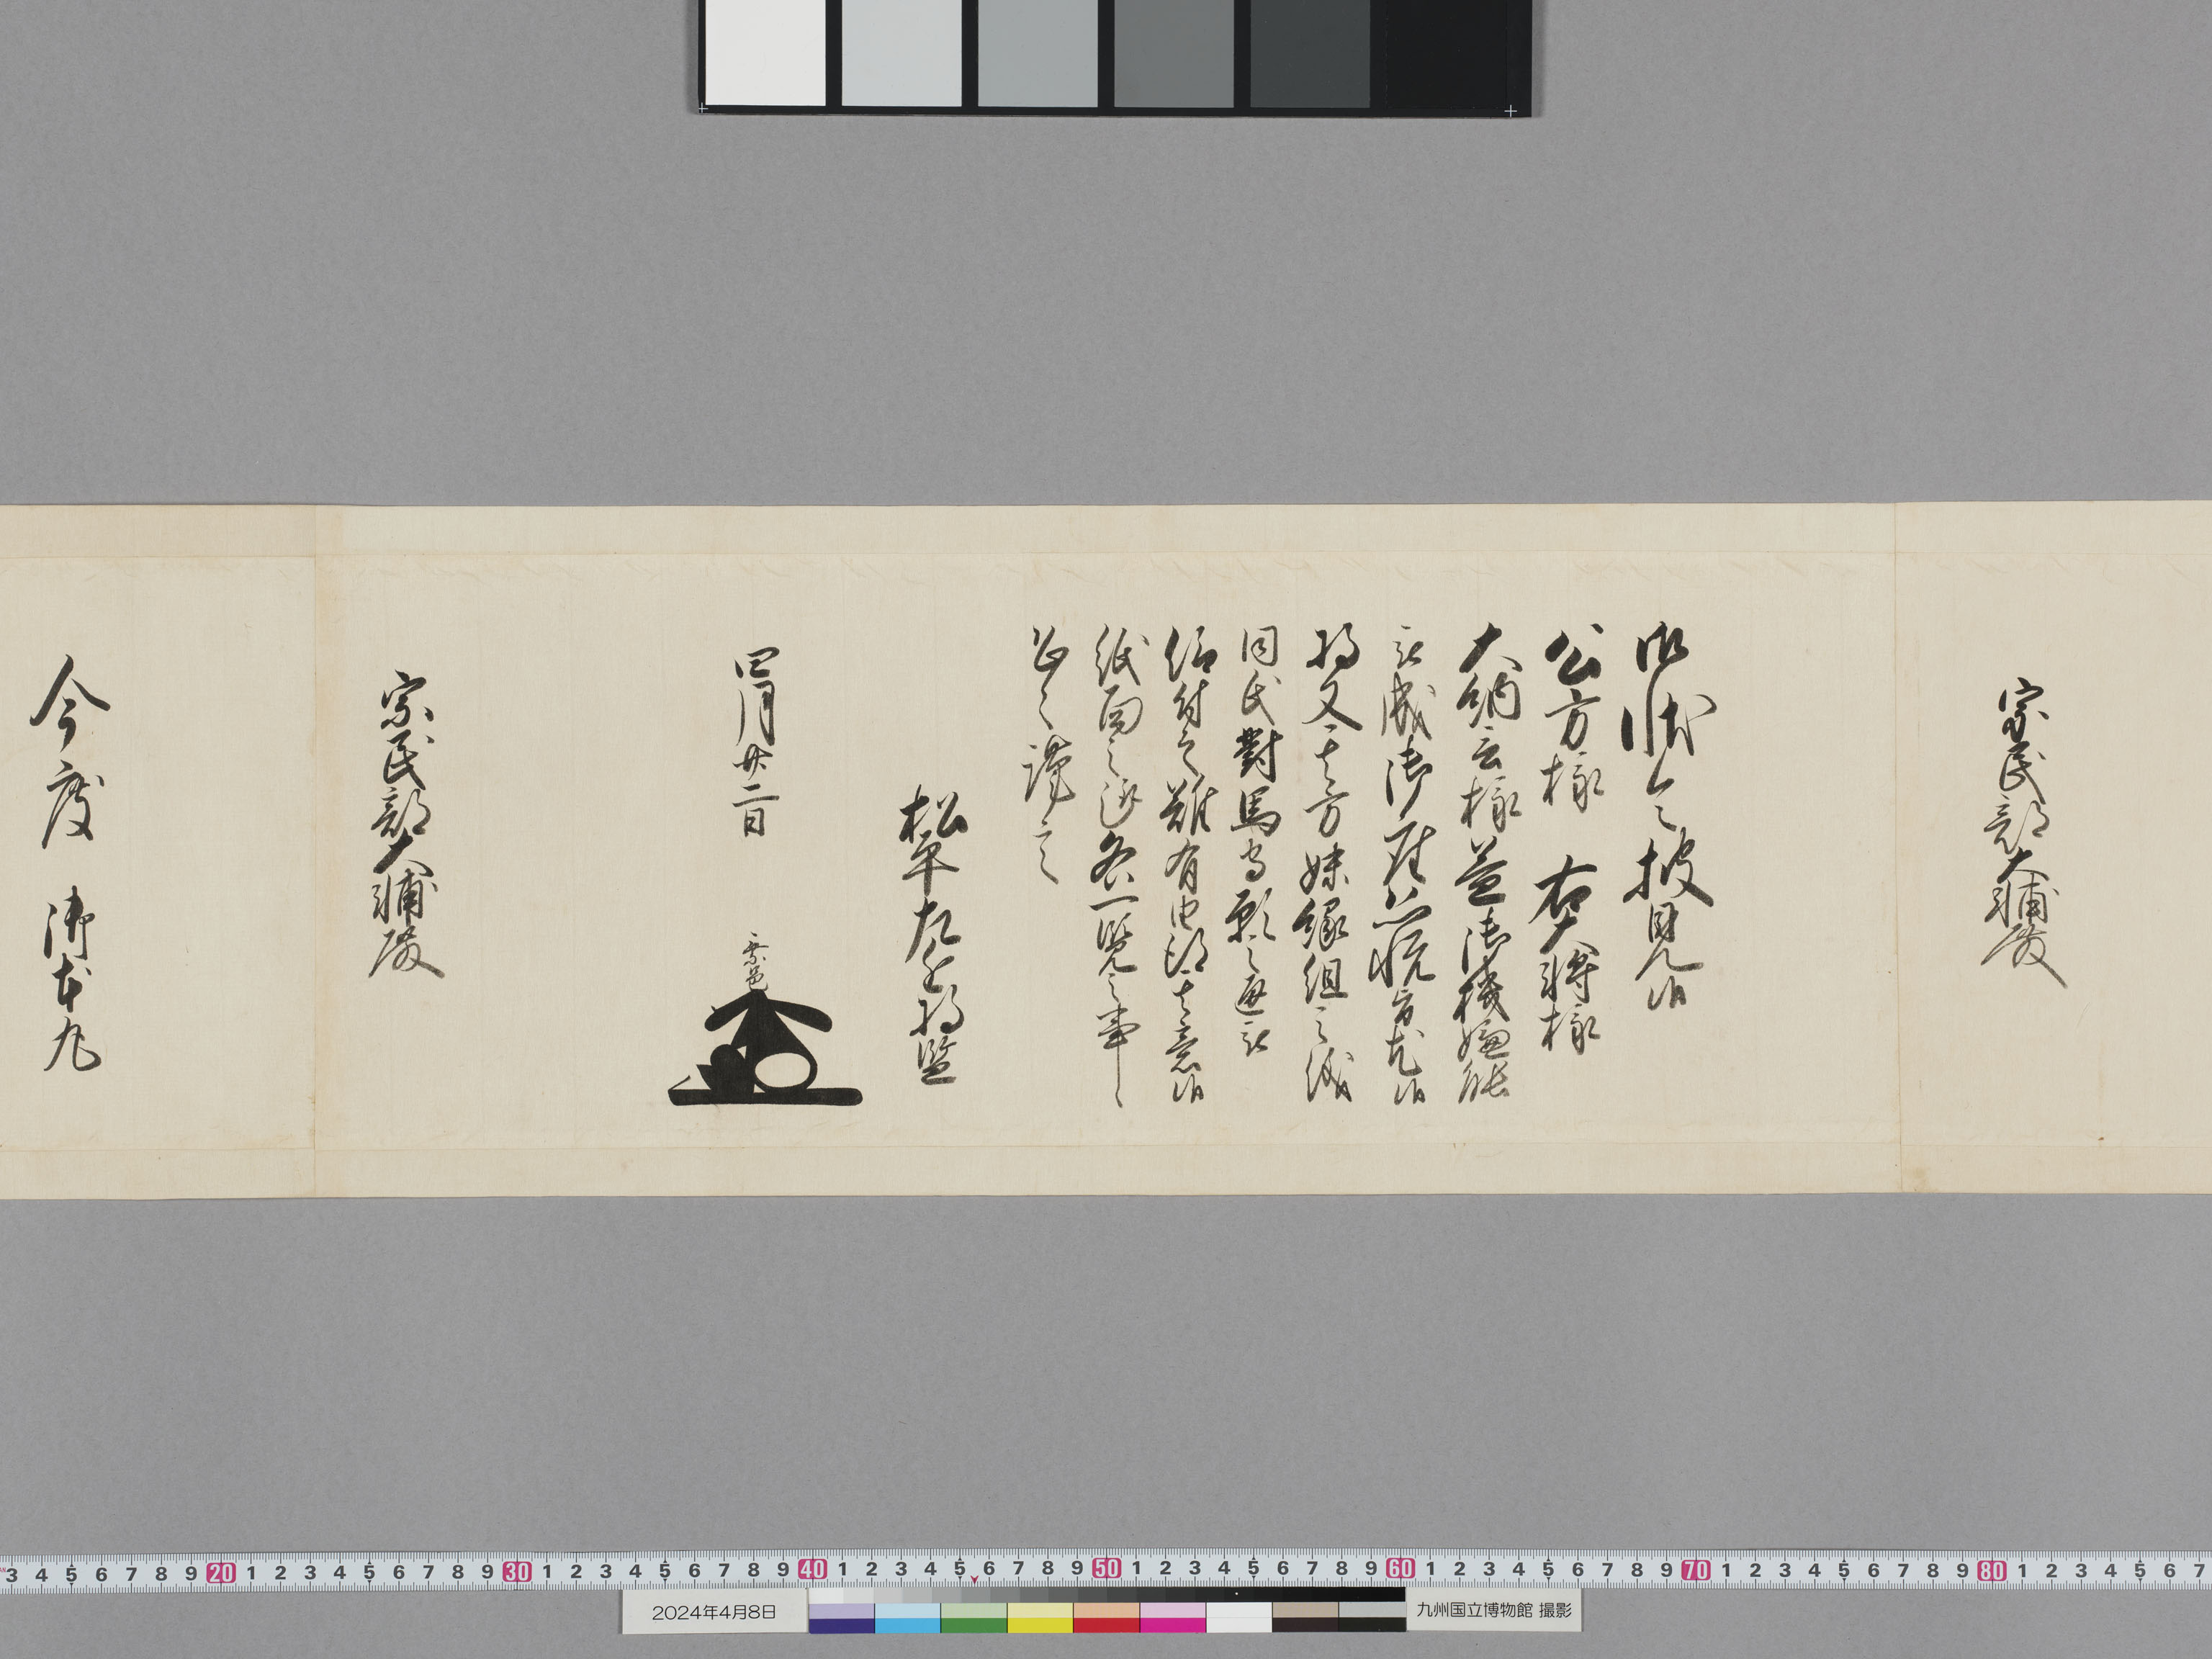 宗民部大輔殿
御状令披見候
公方様 右大将様
大納言様益御機嫌能
被成御座恐悦旨尤候
将又其方妹縁組之儀
同氏對馬守願之通被
仰付之難有由得其意候
紙面之趣各一覧之事候
恐々謹言
松平左近将監
四月廿二日
乗邑
宗民部大輔殿
今度 御本丸
3 4 5 6 7 8 9 20 1 2 3 4 5 6 7 8 9 30 1 2 3 4 5 6 7 8 9 40 1 2 3 4 5 6 7 8 9 50 1 2 3 4 5 6 7 8 9 60 1 2 3 4 5 6 7 8 9 70 1 2 3 4 5 6 7 8 9 80 1 2 3 4 5 6 7
2024年4月8日
九州国立博物館 撮影